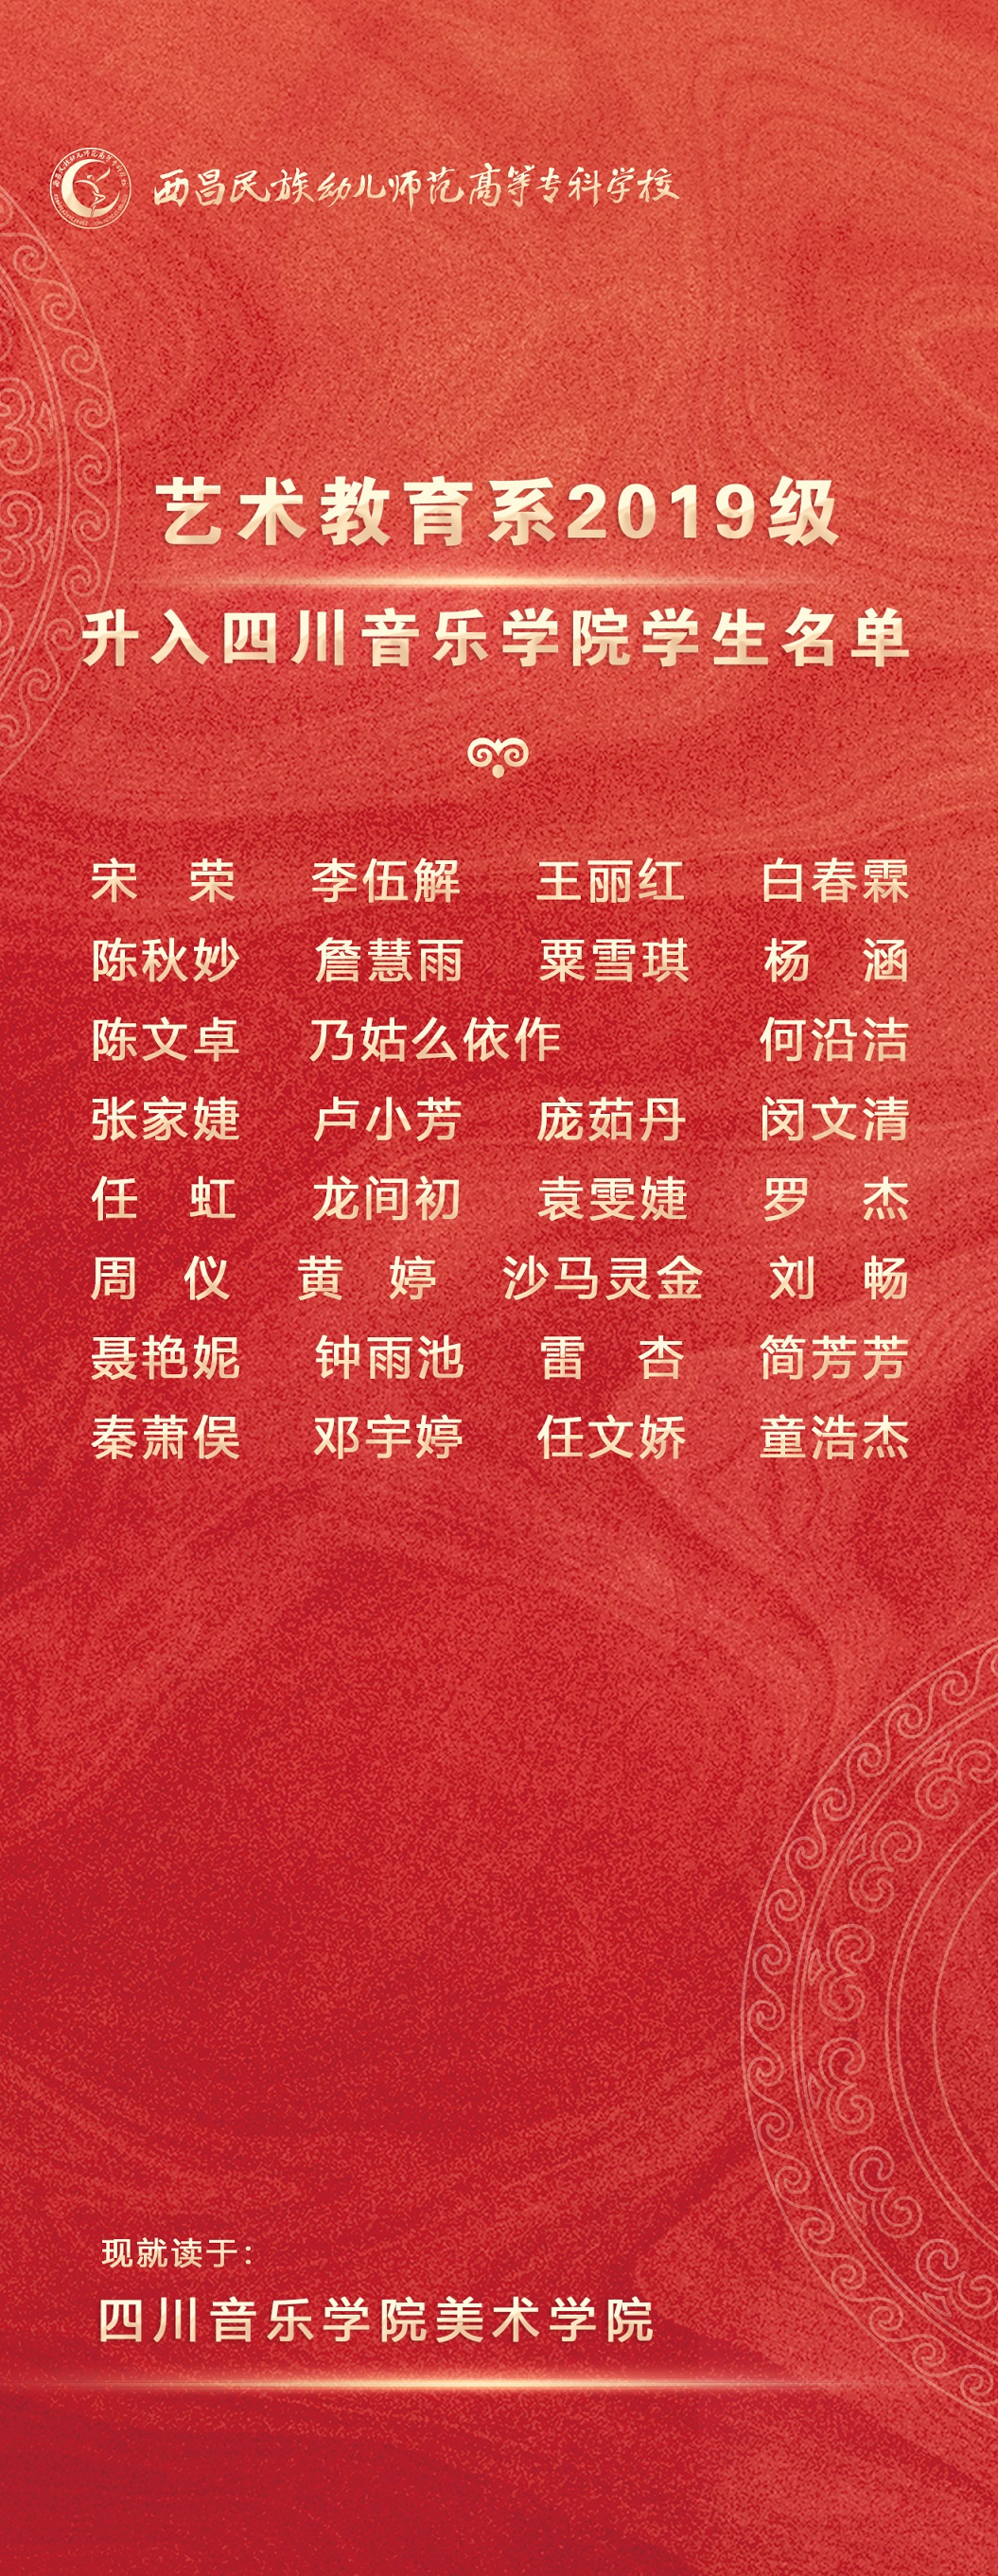 西昌民族幼儿师范高等专科学校
艺术教育系2019级
升入四川音乐学院学生名单
宋 荣 李伍解 王丽红 白春霖
陈秋妙 詹慧雨 粟雪琪 杨 涵
陈文卓 乃姑么依作 何沿洁
张家婕 卢小芳 庞茹丹 闵文清
任 虹 龙间初 袁雯婕 罗 杰
周 仪 黄 婷 沙马灵金 刘 畅
聂艳妮 钟雨池 雷 杏 简芳芳
秦萧俣 邓宇婷 任文娇 童浩杰
现就读于：
四川音乐学院美术学院